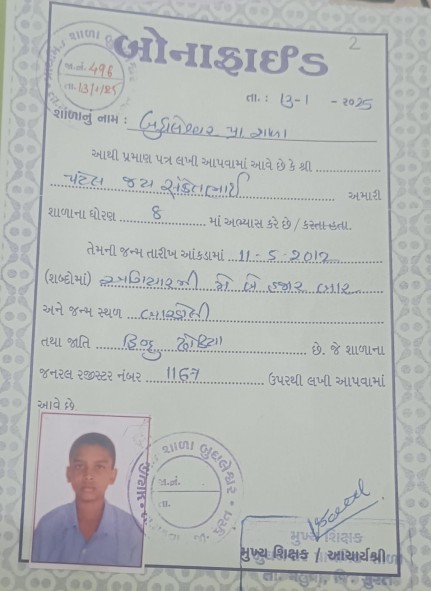 2
બોનાફાઈડ
શાળા બુધલેશ્વર
જા.નં. 496
તા. 13/1/25
તા. : 13-1 - ૨૦૨૫
શાળાનું નામ : બુધલેશ્વર પ્રા શાળા
આથી પ્રમાણ પત્ર લખી આપવામાં આવે છે કે શ્રી
પટેલ જય સંકેતભાઈ અમારી
શાળાના ધોરણ 8 માં અભ્યાસ કરે છે / કરતા હતા.
તેમની જન્મ તારીખ આંકડામાં 11-5-2012
(શબ્દોમાં) અગિયારમી મે બે હજાર બાર
અને જન્મ સ્થળ બારડોલી
તથા જાતિ હિન્દુ ઢોડિયા છે. જે શાળાના
જનરલ રજીસ્ટર નંબર 1167 ઉપરથી લખી આપવામાં
આવે છે.
શાળા બુધલેશ્વર
જા.નં.
તા.
મુખ્ય શિક્ષક
મુખ્ય શિક્ષક / આચાર્યશ્રી
તા. મહુવા, જિ. સુરત